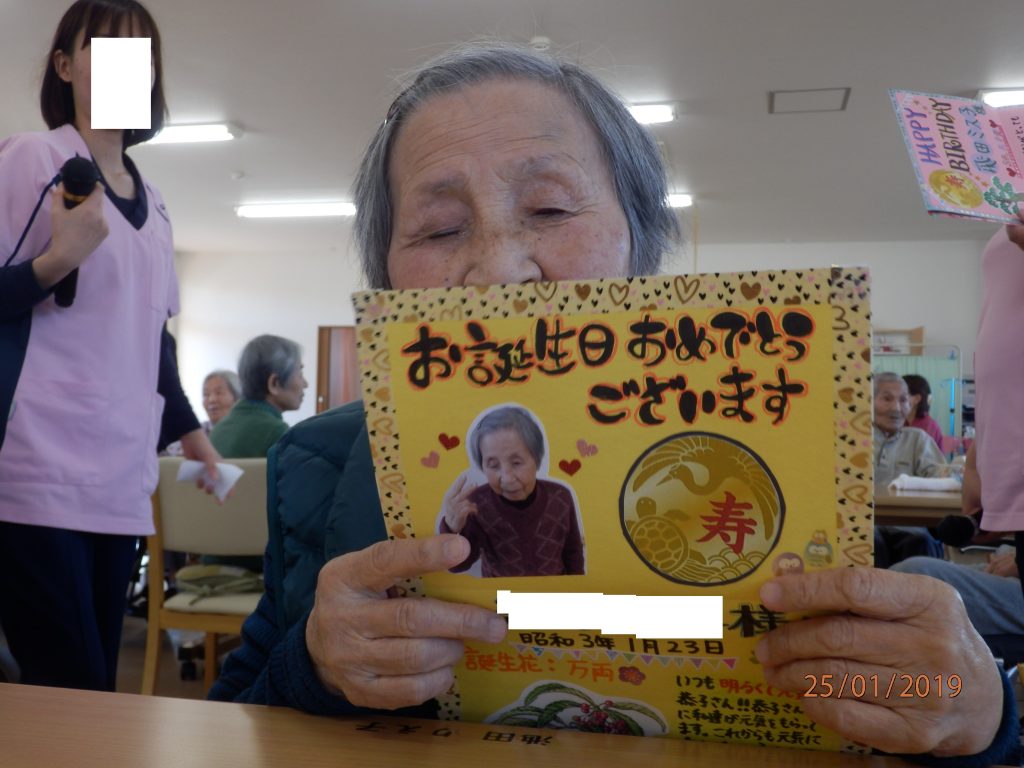 HAPPY
BIRTHDAY
寿
お誕生日 おめでとう
ございます
寿
様
昭和3年1月23日
誕生花：万両
いつも明るく
恭子さん!!恭子さん
に私達が元気をもらって
ます。これからも元気に
池田 りえ子
25/01/2019